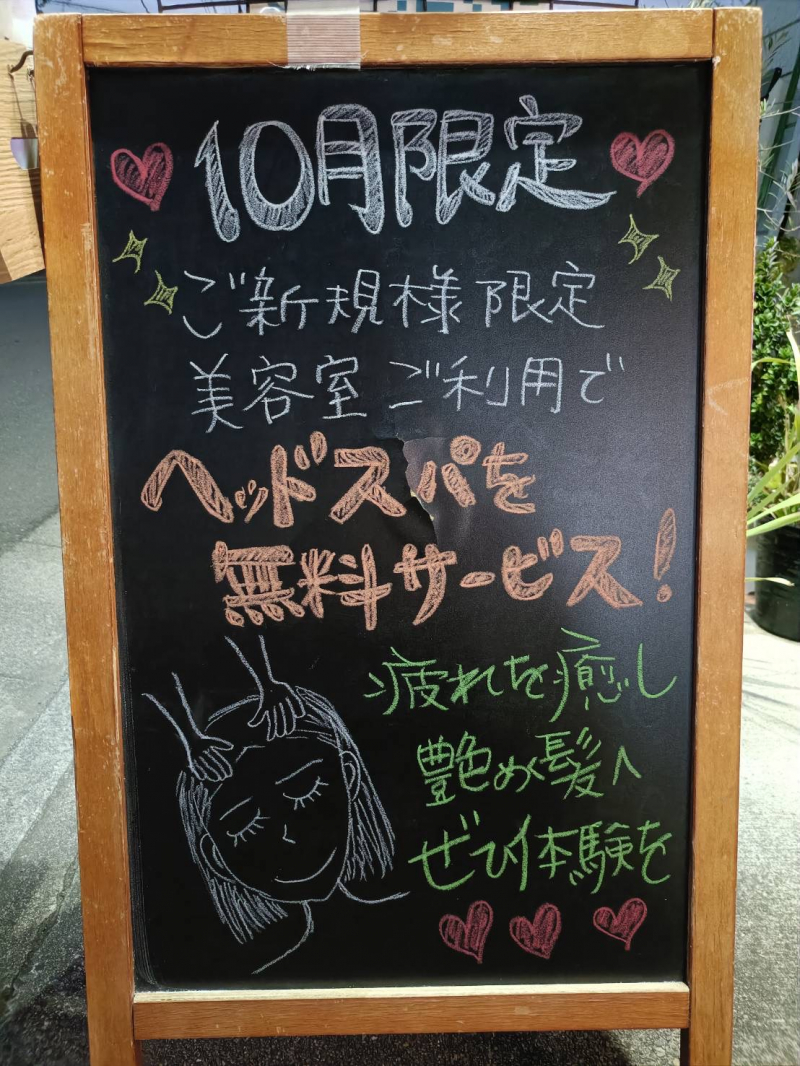 10月限定
ご新規様限定
美容室ご利用で
ヘッドスパを
無料サービス!
疲れを癒し
艶めく髪へ
ぜひ体験を